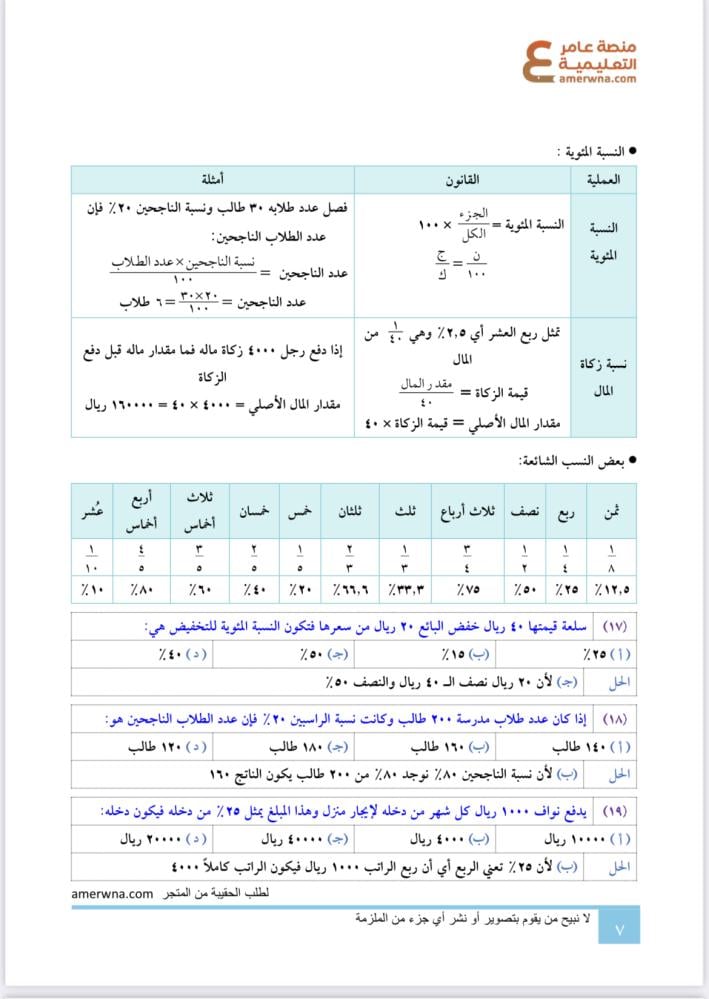 منصة عامر
التعليمية
amerwna.com
● النسبة المئوية :
العملية القانون أمثلة
النسبة المئوية
النسبة المئوية = الجزء / الكل × ١٠٠
ن / ١٠٠ = ج / ك
فصل عدد طلابه ٣٠ طالب ونسبة الناجحين ٢٠٪ فإن
عدد الطلاب الناجحين:
عدد الناجحين = نسبة الناجحين×عدد الطلاب / ١٠٠
عدد الناجحين = ٣٠×٢٠ / ١٠٠ = ٦ طلاب
نسبة زكاة
المال
تمثل ربع العشر أي ٢,٥٪ وهي ١ / ٤٠ من
المال
قيمة الزكاة = مقدر المال / ٤٠
مقدار المال الأصلي = قيمة الزكاة × ٤٠
إذا دفع رجل ٤٠٠٠ زكاة ماله فما مقدار ماله قبل دفع
الزكاة
مقدار المال الأصلي = ٤٠٠٠ × ٤٠ = ١٦٠٠٠٠ ريال
● بعض النسب الشائعة:
ثمن ربع نصف ثلاث أرباع ثلث ثلثان خمس خمسان ثلاث أخماس أربع أخماس عُشر
١/٨ ١/٤ ١/٢ ٣/٤ ١/٣ ٢/٣ ١/٥ ٢/٥ ٣/٥ ٤/٥ ١/١٠
١٢,٥٪ ٢٥٪ ٥٠٪ ٧٥٪ ٣٣,٣٪ ٦٦,٦٪ ٢٠٪ ٤٠٪ ٦٠٪ ٨٠٪ ١٠٪
(١٧) سلعة قيمتها ٤٠ ريال خفض البائع ٢٠ ريال من سعرها فتكون النسبة المئوية للتخفيض هي:
(أ) ٢٥٪ (ب) ١٥٪ (جـ) ٥٠٪ (د) ٤٠٪
الحل (جـ) لأن ٢٠ ريال نصف الـ ٤٠ ريال والنصف ٥٠٪
(١٨) إذا كان عدد طلاب مدرسة ٢٠٠ طالب وكانت نسبة الراسبين ٢٠٪ فإن عدد الطلاب الناجحين هو:
(أ) ١٤٠ طالب (ب) ١٦٠ طالب (جـ) ١٨٠ طالب (د) ١٢٠ طالب
الحل (ب) لأن نسبة الناجحين ٨٠٪ نوجد ٨٠٪ من ٢٠٠ طالب يكون الناتج ١٦٠
(١٩) يدفع نواف ١٠٠٠ ريال كل شهر من دخله لإيجار منزل وهذا المبلغ يمثل ٢٥٪ من دخله فيكون دخله:
(أ) ١٠٠٠٠ ريال (ب) ٤٠٠٠ ريال (جـ) ٤٠٠٠٠ ريال (د) ٢٠٠٠٠ ريال
الحل (ب) لأن ٢٥٪ تعني الربع أي أن ربع الراتب ١٠٠٠ ريال فيكون الراتب كاملاً ٤٠٠٠
لطلب الحقيبة من المتجر amerwna.com
لا نبيح من يقوم بتصوير أو نشر أي جزء من الملزمة
٧